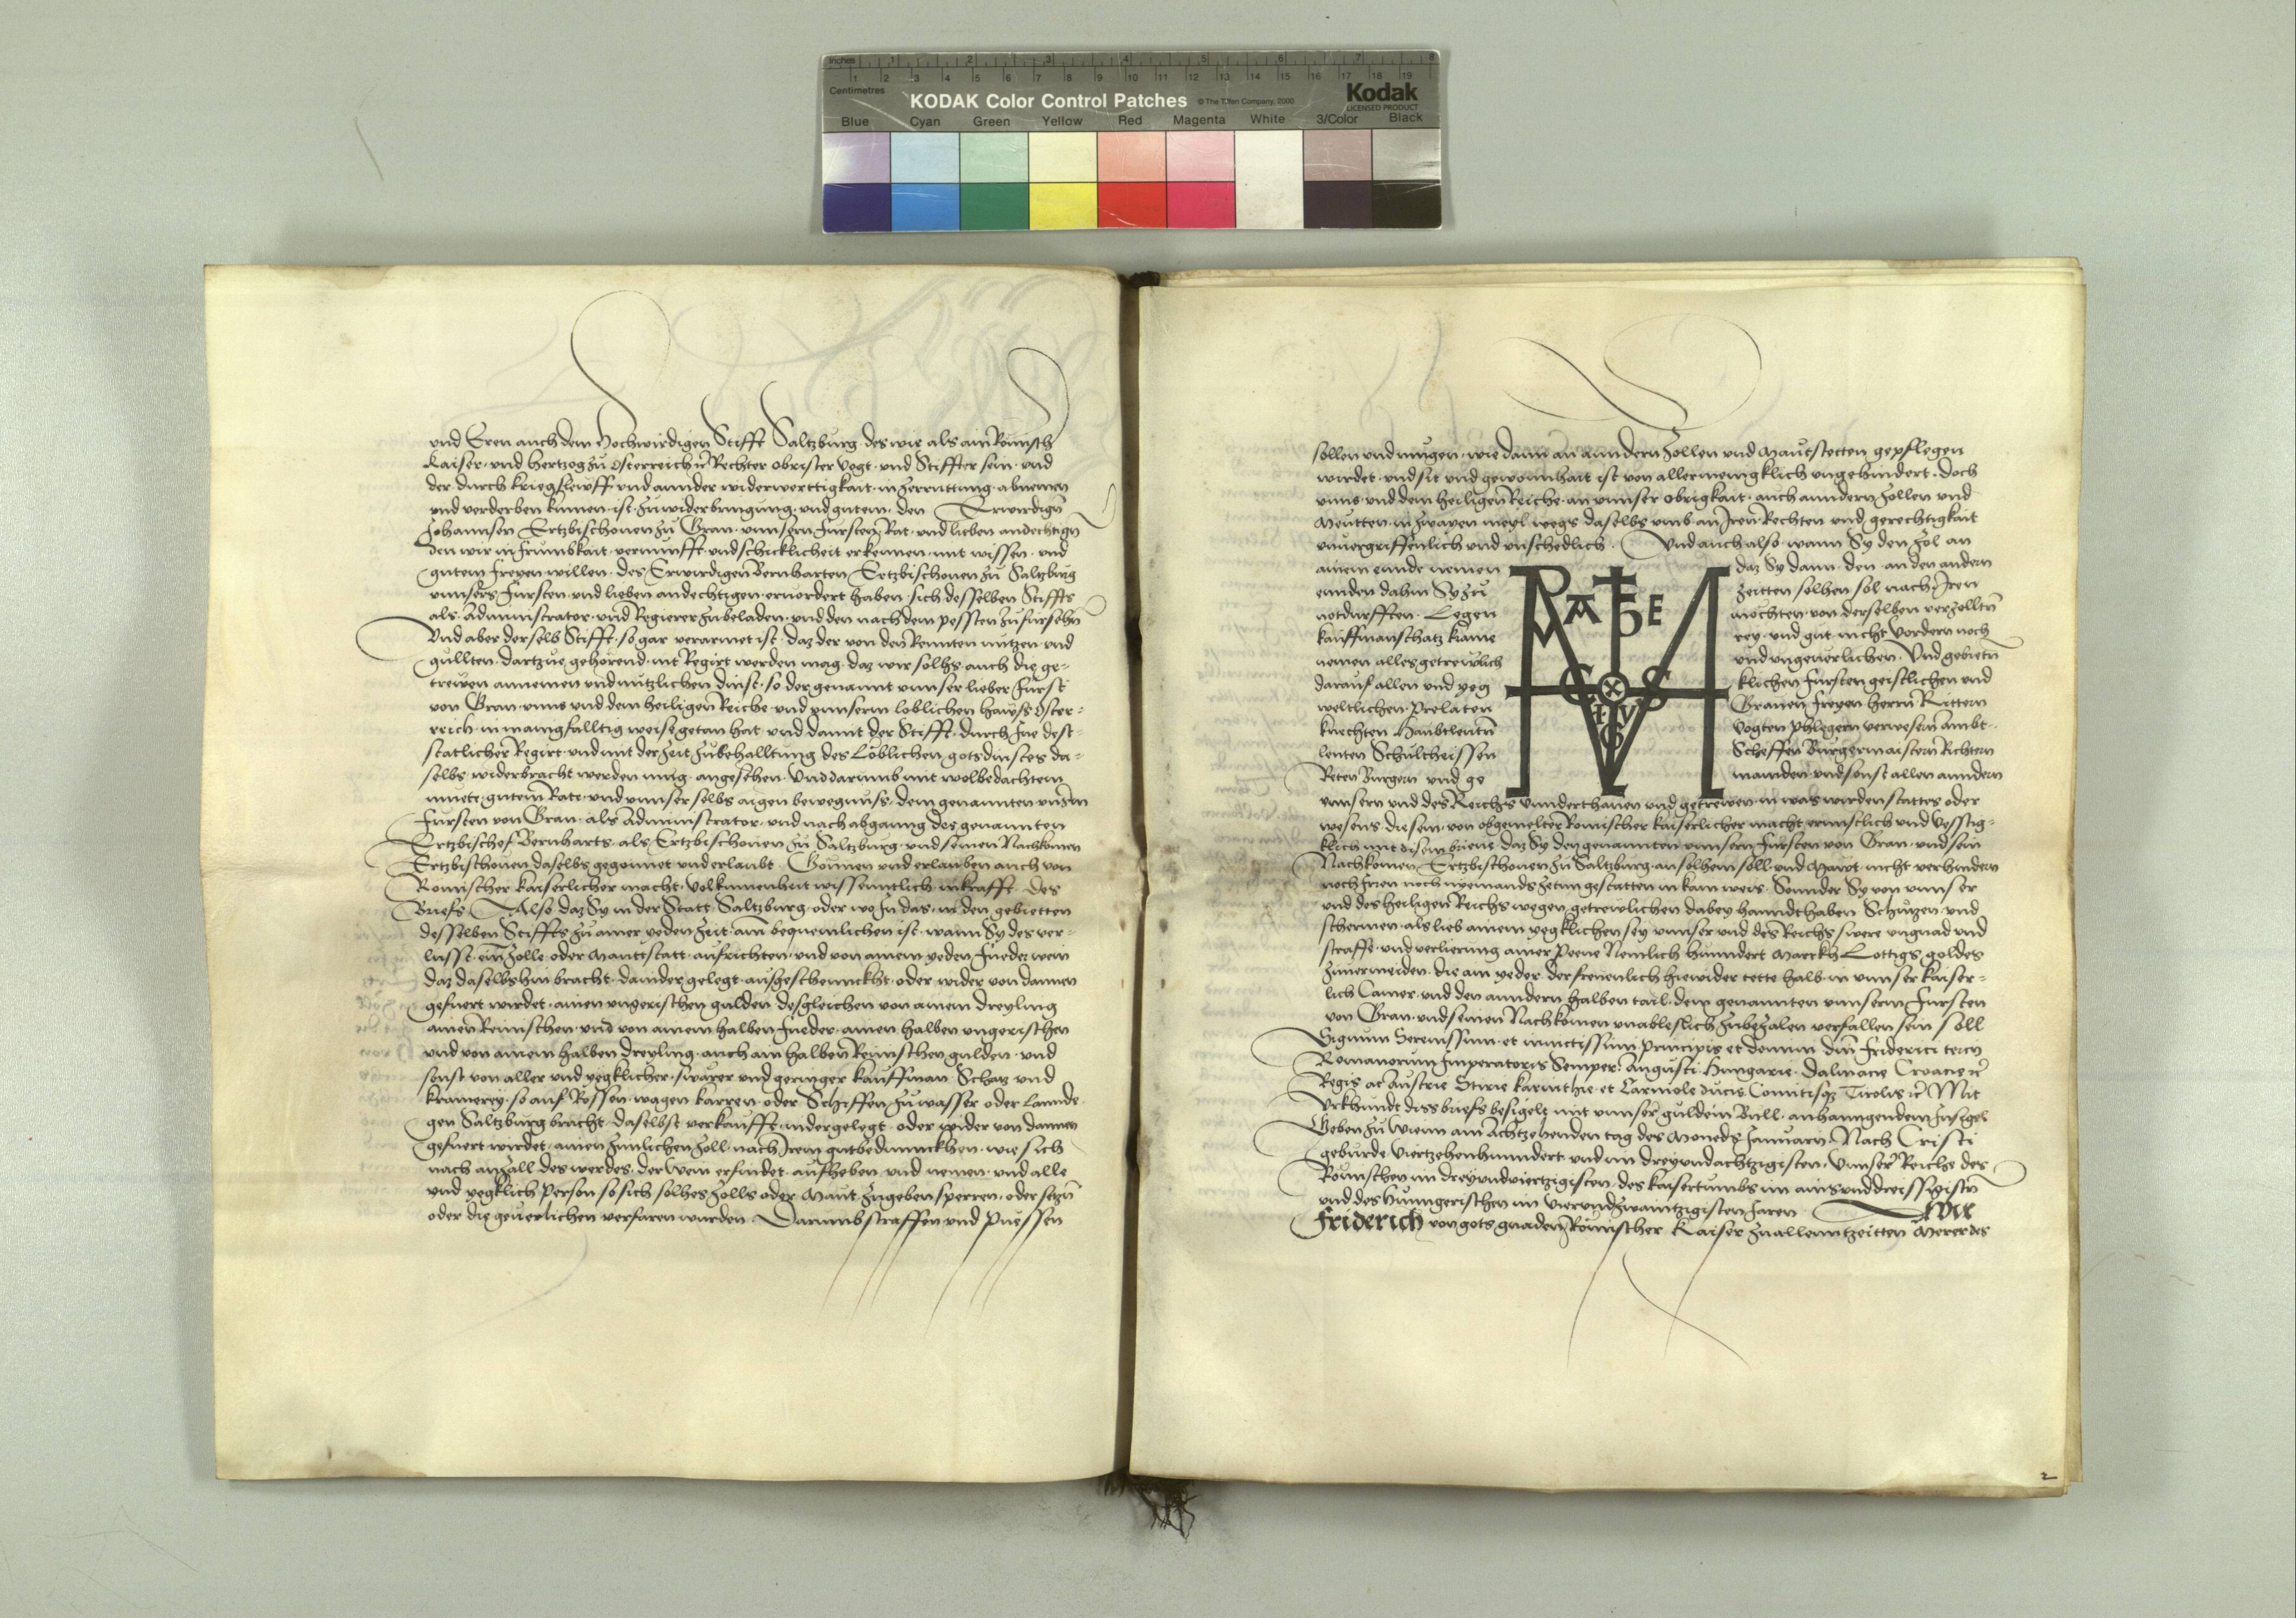 Inches 1 2 3 4 5 6 7 8
1 2 3 4 5 6 7 8 9 10 11 12 13 14 15 16 17 18 19
Centimetres
KODAK Color Control Patches © The Tiffen Company, 2000 Kodak
LICENSED PRODUCT
Blue Cyan Green Yellow Red Magenta White 3/Color Black
und Eren auch dem Hochwirdigen Stifft Saltzburg des wir als ain Romisch
Kaiser und Hertzog zu Osterreich rc Rechter obrister Vogt und Stiffter sein und
der durch kriegslewff und annder widerwerttigkait in zerruttung abnemen
und verderben kumen ist zu widerbringung und gutem den Erwirdign
Johannsen Ertzbischouen zu Gran unnsern Fursten Rat und lieben andechtign
den wir in frumbkait vernunfft und schicklicheit erkennen mit wissen und
gutem freyen willen des Erwirdigen Bernharten Ertzbischouen zu Saltzburg
unnsers Fursten und lieben andechtigen eruordert haben sich desselben Stiffts
als Administrator und Regierer zubeladen und den nach dem pessten zufursehn
Und aber derselb Stifft so gar verarmet ist daz der von den Rennten nutzen und
gullten dartzue gehorend nit Regirt werden mag daz wir solhs auch die ge-
trewen annemen und nutzlichen dinst so der genannt unnser lieber Furst
von Gran unns und dem heiligen Reiche und unnserm loblichen hawss Oster-
reich in manigfalltig weise getan hat und damit der Stifft durch Ine dest-
statlicher Regirt und mit der zeit zubehalltung des Loblichen gotsdinstes da-
selbs widerbracht werden mug angesehen Und darumb mit wolbedachtem
muete gutem Rate und unnser selbs aigen bewegnuss dem genannten unsern
Fursten von Gran als Administrator und nach abganng des genannten
Ertzbischof Bernharts als Ertzbischouen zu Saltzburg und seinen Nachkomen
Ertzbischouen daselbs gegonnet und erlaubt Gonnen und erlauben auch von
Romischer kaiserlicher macht volkumenheit wissenntlich in krafft des
Briefs Also daz Sy in der Statt Saltzburg oder wo In das in den gebietten
desselben Stiffts zu ainer yeden zeit am bequemlichen ist wann Sy des ver-
lusst ein zolle oder Mautstatt aufrichten und von ainem yeden Fueder wein
daz daselbshin bracht danider gelegt ausgeschennckht oder wider von dannen
gefuert wirdet ainen ungerischen gulden desgleichen von ainem dreyling
ainen Reinischen und von ainem halben Fueder ainen halben ungerischen
und von ainem halben dreyling auch ain halben Reinischen gulden und
sonst von aller und yegklicher swarer und geringer kauffman Schatz und
kramerey so auf Rossen wagen karren oder Schiffen zu wasser oder lannde
gen Saltzburg bracht daselbst verkaufft nidergelegt oder wider von dannen
gefuert wirdet ainen zimlichen zoll nach Irem gutbedunnckhen wie sich
nach anzall des werdes der wein erfindet aufheben und nemen und alle
und yegklich person so sich solhes zolls oder Maut zugeben sperren oder setzn
oder die geuerlichen verfaren wurden Darumb straffen und puessen
sollen und mugen wie dann an anndern zollen und Mautstetten gepflegen
wirdet und sit und gewonnhait ist von allermenigklich ungehindert doch
unns und dem heiligen Reiche an unnser obrigkait auch anndern zollen und
Meutten in zwayen meyl wegs daselbs umb an Iren Rechten und gerechtigkait
unuergriffenlich und unschedlich Und auch also wann Sy den zol an
ainem ennde nemen daz Sy dann den an den andern
ennden dahin Sy zu zeitten solhen zol nach Iren
notdurfften Legen mochten von derselben verzolltn
kauffmanschatz krame rey und gut nicht vordern noch
nemen alles getrewlich und ungeuerlichen Und gebietn
darauf allen und yeg klichen Fursten geistlichen und
weltlichen Prelaten Grauen freyen herrn Rittern
knechten Haubtleutn Vogten Phlegern verwesern ambt
leuten Schultheissen Scheffen Burgermaistern Richtern
Reten Burgern und ge mainden und sonst allen anndern
unnsern und des Reichs unnderthanen und getrewen in was wirden stattes oder
wesens die sein von obgemelter Romischer kaiserlicher macht ernnstlich und vesstig-
klich mit disem brieue daz Sy den genannten unnsern Fursten von Gran und sein
Nachkomen Ertzbischouen zu Saltzburg an solhem zoll und Mawt nicht verhindern
noch Irren noch nyemands zetun gestatten in kain weis Sonnder Sy von unnser
und des heiligen Reichs wegen getrewlichen dabey hanndthaben Schutzen und
schermen als lieb ainem yegklichen sey unnser und des Reichs swere ungnad und
straffe und verlierung ainer peene Nemlich hunndert Marckh Lottigs goldes
zuuermeiden die ain yeder der freuenlich hiewider tette halb in unnser kaiser-
lich Camer und den anndern halben tail dem genannten unnserm Fursten
von Gran und seinen Nachkomen unableslich zubezalen verfallen sein soll
Signum Serenissimi et inuictissimi principis et domini dni Friderici tercii
Romanorum Imperatoris Semper Augusti Hungarie Dalmacie Croacie rc
Regis ac Austrie Stirie karinthie et Carniole ducis Comitisqz Tirolis rc Mit
Urkhundt diss briefs besigelt mit unnser guldein Bull anhanngendem Insigel
Geben zu Wienn am Achtzehenden tag des Moneds Januarii Nach Cristi
geburde Viertzehenhunndert und im dreyundachtzigisten Unnser Reiche des
Romischen im dreyundviertzigisten des kaisertumbs im ainsunddreissigistn
und des Hunngerischen im Vierundzwaintzigisten Jaren Wir
Friderich von gots gnaden Romischer Kaiser zuallenntzeitten Mererdes
2